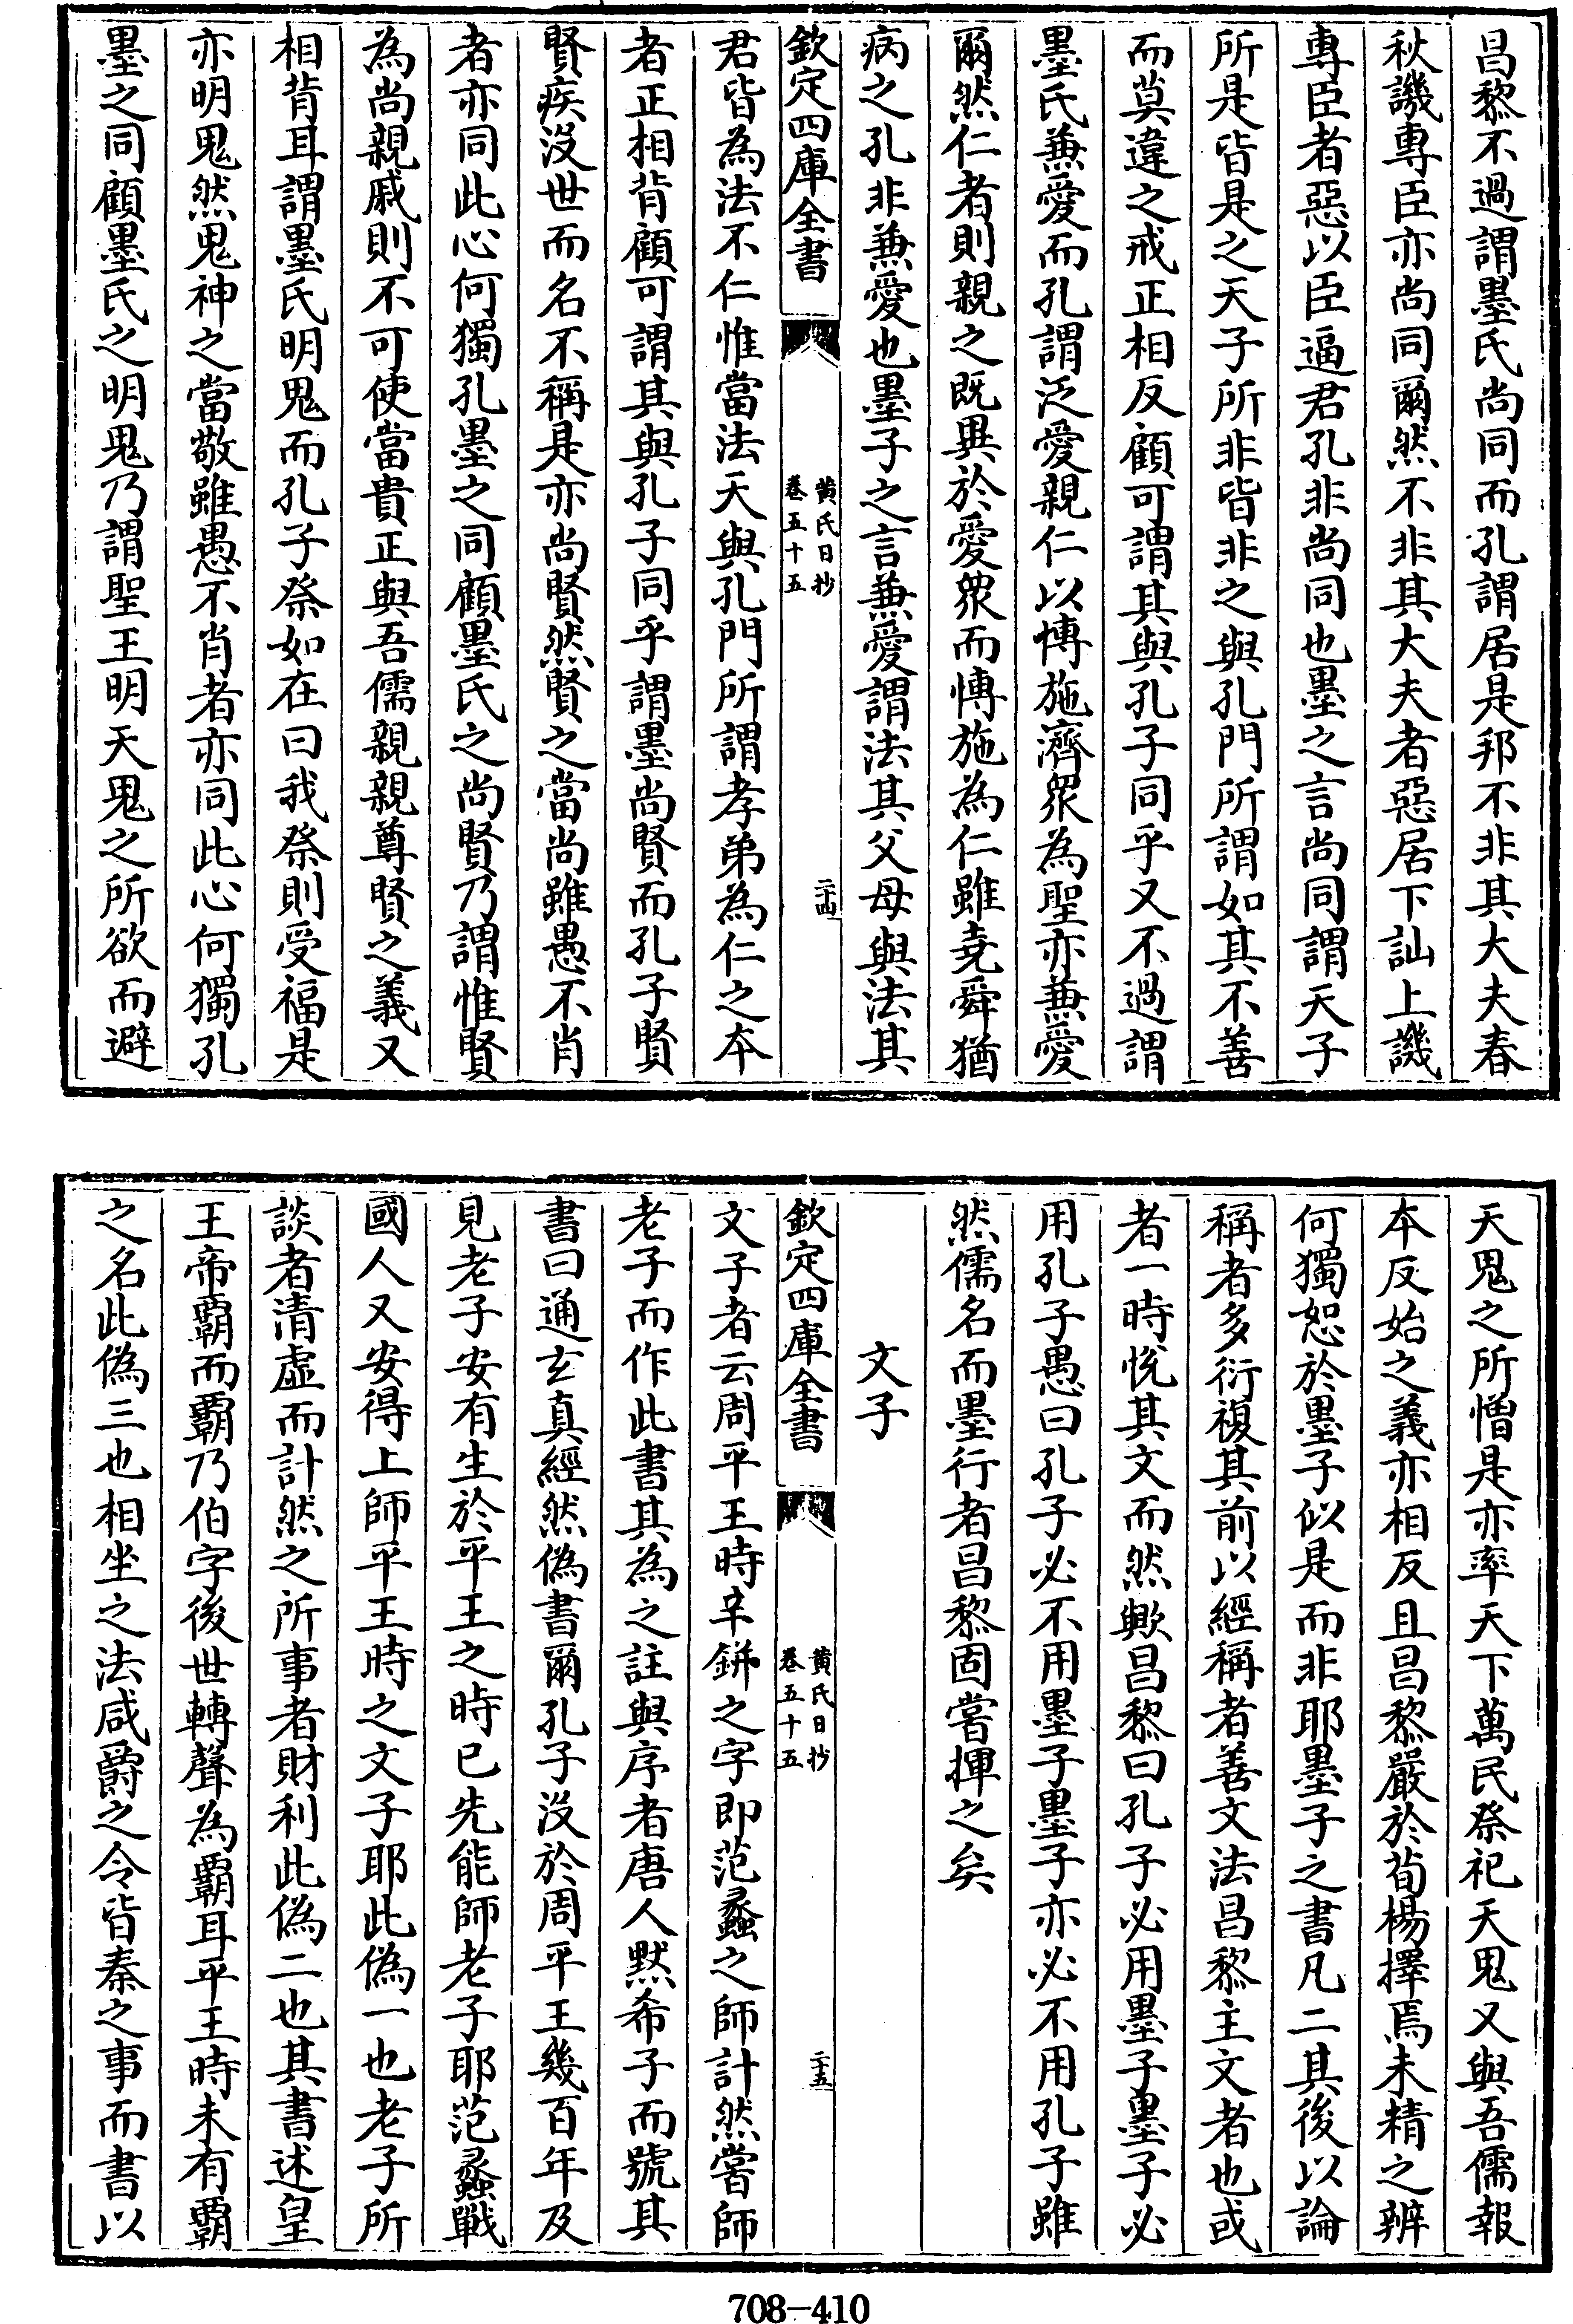 昌黎不過謂墨氏尚同而孔謂居是邦不非其大夫春
秋譏專臣亦尚同爾然不非其大夫者惡居下訕上譏
專臣者惡以臣逼君孔非尚同也墨之言尚同謂天子
所是皆是之天子所非皆非之與孔門所謂如其不善
而莫違之戒正相反顧可謂其與孔子同乎又不過謂
墨氏兼愛而孔謂泛愛親仁以博施濟眾為聖亦兼愛
爾然仁者則親之既異於愛眾而博施為仁雖堯舜猶
病之孔非兼愛也墨子之言兼愛謂法其父母與法其
欽定四庫全書
黃氏日抄
卷五十五
二十四
君皆為法不仁惟當法天與孔門所謂孝弟為仁之本
者正相背顧可謂其與孔子同乎謂墨尚賢而孔子賢
賢疾沒世而名不稱是亦尚賢然賢之當尚雖愚不肖
者亦同此心何獨孔墨之同顧墨氏之尚賢乃謂惟賢
為尚親戚則不可使當貴正與吾儒親親尊賢之義又
相背耳謂墨氏明鬼而孔子祭如在曰我祭則受福是
亦明鬼然鬼神之當敬雖愚不肖者亦同此心何獨孔
墨之同顧墨氏之明鬼乃謂聖王明天鬼之所欲而避
天鬼之所憎是亦率天下萬民祭祀天鬼又與吾儒報
本反始之義亦相反且昌黎嚴於荀楊擇焉未精之辨
何獨恕於墨子似是而非耶墨子之書凡二其後以論
稱者多衍複其前以經稱者善文法昌黎主文者也或
者一時悅其文而然歟昌黎曰孔子必用墨子墨子必
用孔子愚曰孔子必不用墨子墨子亦必不用孔子雖
然儒名而墨行者昌黎固嘗揮之矣
文子
欽定四庫全書
黃氏日抄
卷五十五
二十五
文子者云周平王時辛鈃之字即范蠡之師計然嘗師
老子而作此書其為之註與序者唐人默希子而號其
書曰通玄真經然偽書爾孔子沒於周平王幾百年及
見老子安有生於平王之時已先能師老子耶范蠡戰
國人又安得上師平王時之文子耶此偽一也老子所
談者清虛而計然之所事者財利此偽二也其書述皇
王帝霸而霸乃伯字後世轉聲為霸耳平王時未有霸
之名此偽三也相坐之法咸爵之令皆秦之事而書以
708-410